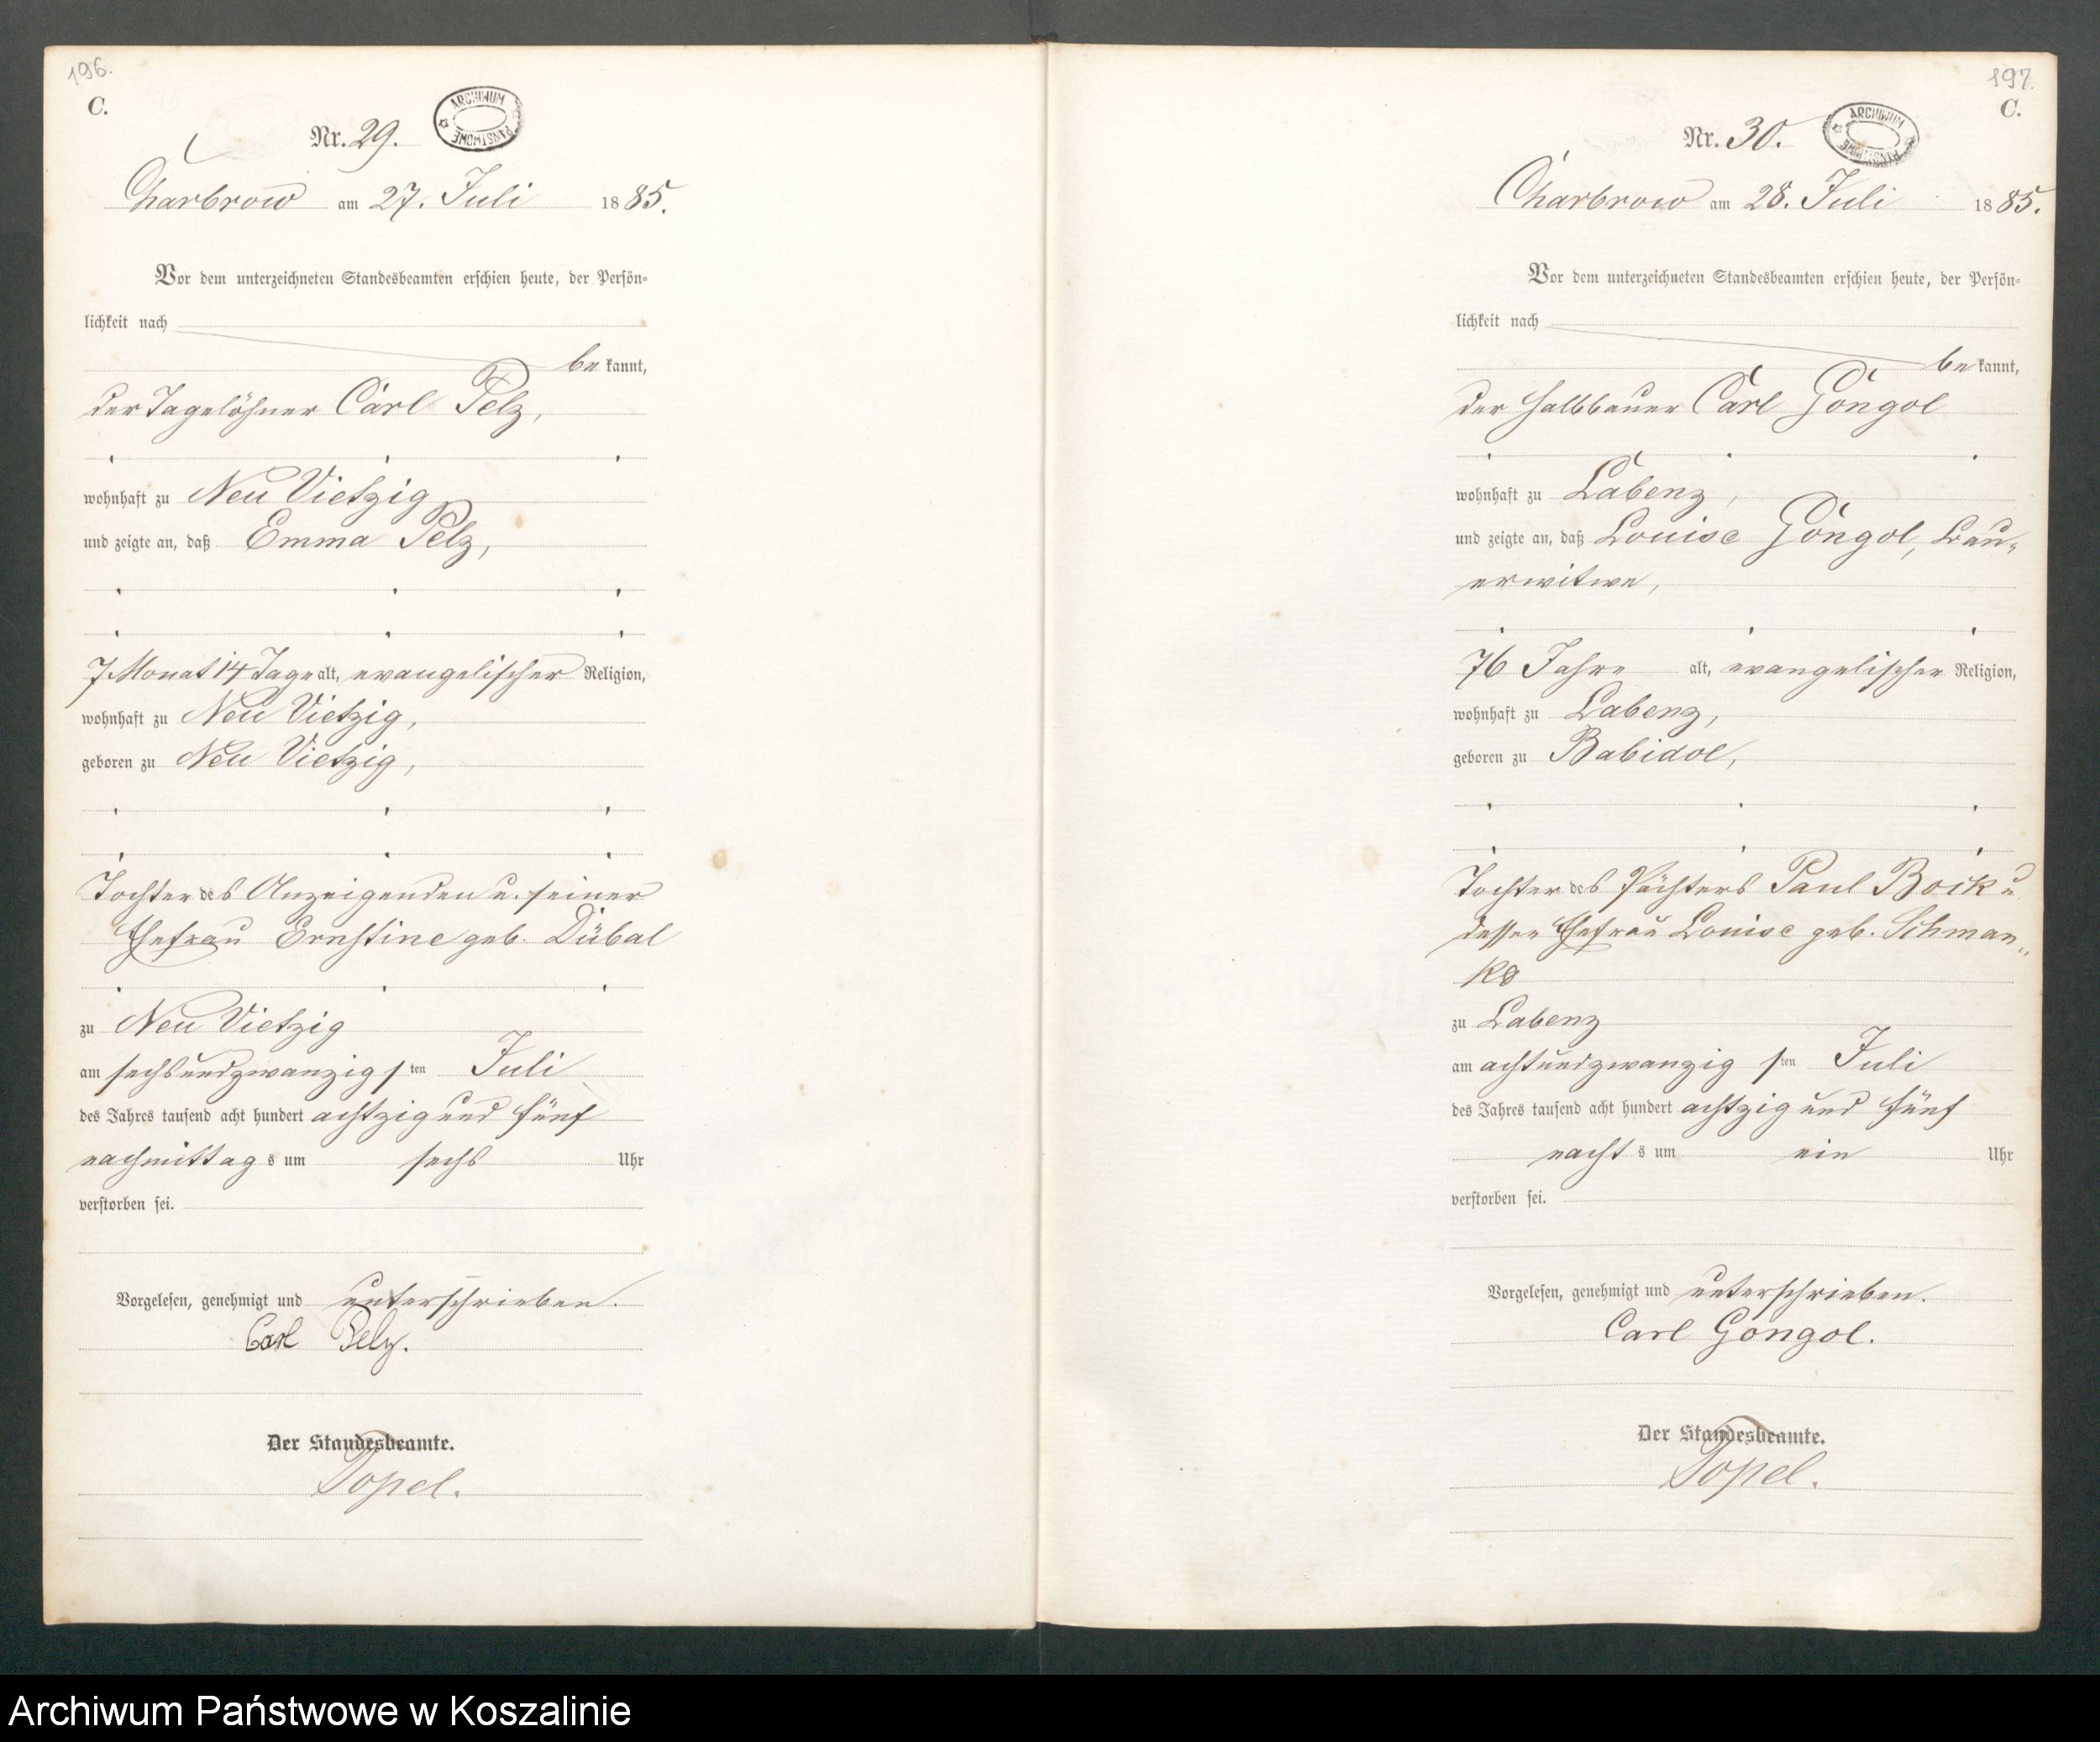 196.
C.
Nr. 29.
ARCHIWUM PAŃSTWOWE
Charbrow am 27. Juli 1885.
Vor dem unterzeichneten Standesbeamten erschien heute, der Persön-
lichkeit nach
bekannt,
der Tagelöhner Carl Pelz,
wohnhaft zu Neu Vietzig
und zeigte an, daß Emma Pelz,
7 Monat 14 Tage alt, evangelischer Religion,
wohnhaft zu Neu Vietzig,
geboren zu Neu Vietzig,
Tochter des Anzeigenden u. seiner
Ehefrau Ernstine geb. Dübal
zu Neu Vietzig
am sechsundzwanzigsten Juli
des Jahres tausend acht hundert achtzig und fünf
nachmittags um sechs Uhr
verstorben sei.
Vorgelesen, genehmigt und unterschrieben.
Carl Pelz.
Der Standesbeamte.
Topel.
197.
C.
Nr. 30.
ARCHIWUM PAŃSTWOWE
Charbrow am 28. Juli 1885.
Vor dem unterzeichneten Standesbeamten erschien heute, der Persön-
lichkeit nach
bekannt,
der Halbbauer Carl Gongol
wohnhaft zu Labenz,
und zeigte an, daß Louise Gongol, Bau-
erwitwe,
76 Jahre alt, evangelischer Religion,
wohnhaft zu Labenz,
geboren zu Babidol,
Tochter des Pächters Paul Boik u
dessen Ehefrau Louise geb. Schman-
ke
zu Labenz
am achtundzwanzigsten Juli
des Jahres tausend acht hundert achtzig und fünf
nachts um ein Uhr
verstorben sei.
Vorgelesen, genehmigt und unterschrieben.
Carl Gongol.
Der Standesbeamte.
Topel.
Archiwum Państwowe w Koszalinie